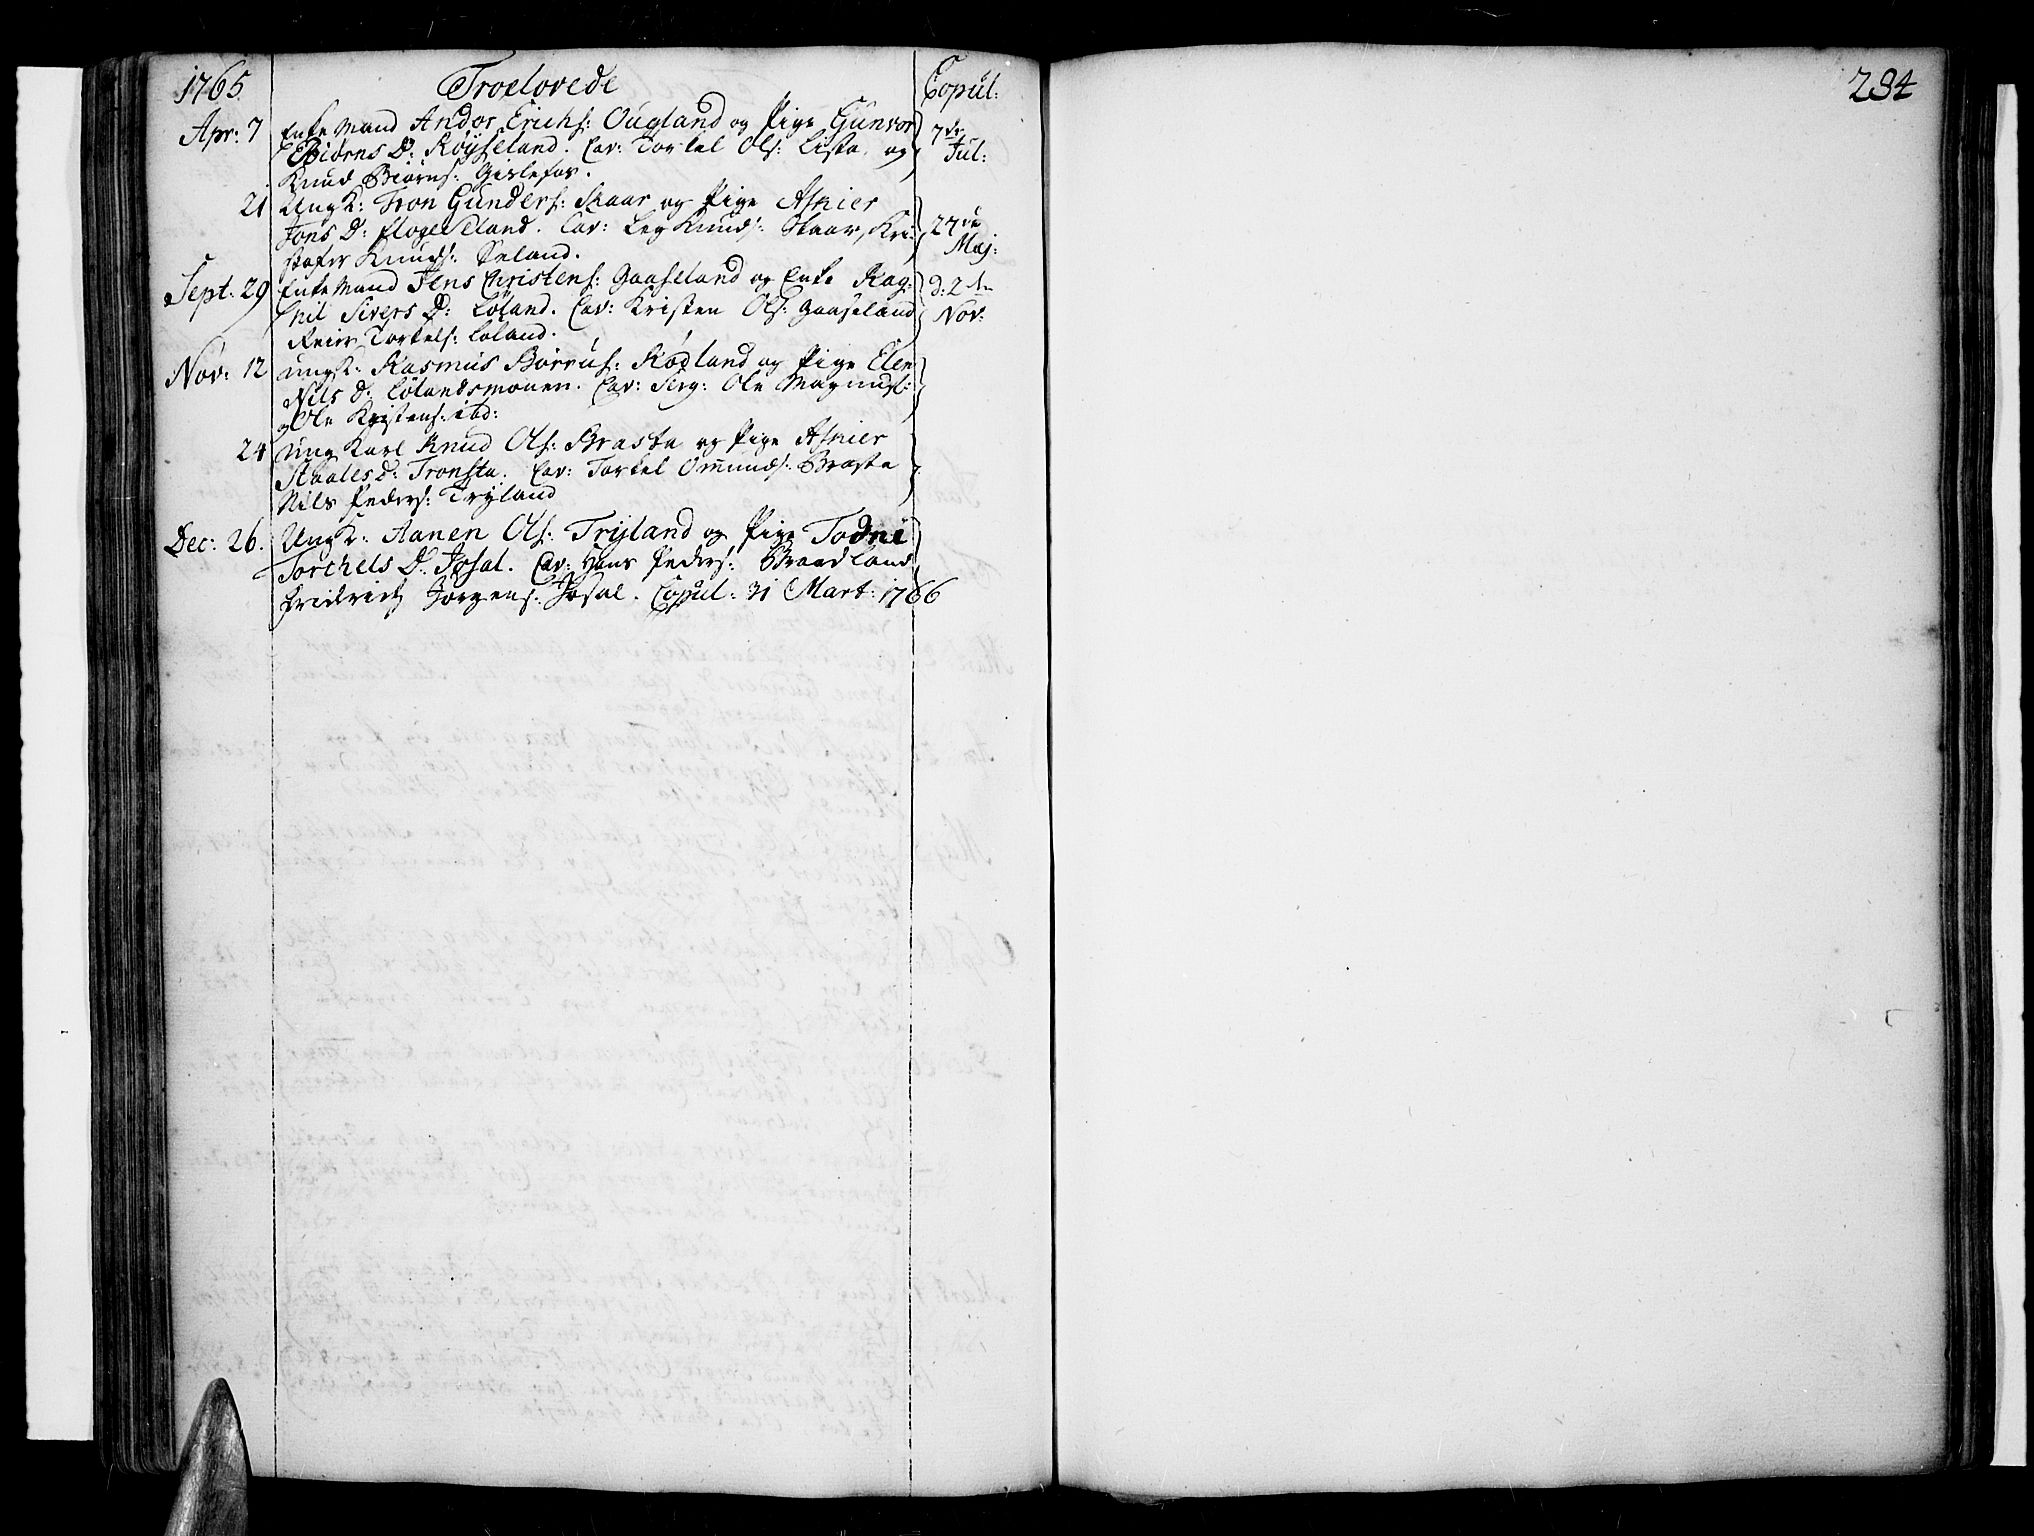 1765. Troelovede Copul:
Apr: 7 Enke Mand Andor Erichs: Ougland og Pige Gunvor 7de
Biørns D: Røyseland. Cav: Torkel Ols: Lista og Jul:
Knud Biørns: Gislefos.
21 Ungk: Tron Gunders: Skaar og Pige Asnier
Jons D: Hogeseland. Cav: Leg Knuds: Skaar, Kri- 27de
stofer Knuds: Seland. Maj:
Sept: 29 Enke Mand Jens Christens: Gaaseland og Enke Rag- d: 2den
nil Sivers D: Løland. Cav: Kristen Ols: Gaaseland Nov:
Reier Torkels: Loland.
Nov: 12 ungk: Rasmus Børrus: Rødland og Pige Elen
Nils D: Lølandsmonen. Cav: Serg: Ole Magnus:
og Ole Kristens: ibd:
24 Ung Karl Knud Ols: Brasta og Pige Asnier
Staales D: Tronsta. Cav: Torkel Omunds: Brasta
Nils Peders: Tryland
Dec: 26. Ungk: Aanen Ols: Tryland og Pige Todni
Torchels D: Josal. Cav: Hans Peders: Braadland
Fridrich Jørgens: Josal. Copul: 31 Mart: 1766
234